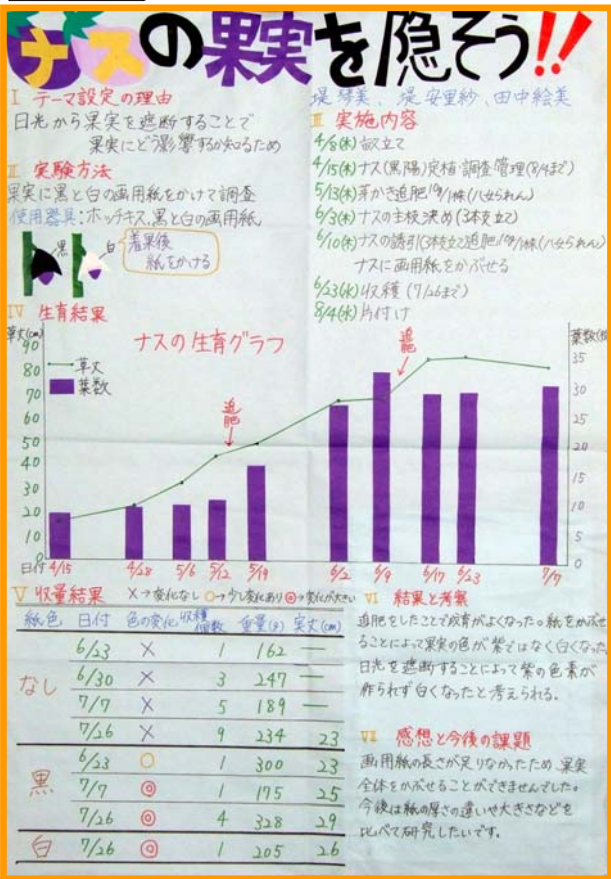 ナスの果実を隠そう!!
I テーマ設定の理由
日光から果実を遮断することで
果実にどう影響するか知るため
II 実験方法
果実に黒と白の画用紙をかけて調査
使用器具:ホッチキス、黒と白の画用紙
黒
白
着果後
紙をかける
堤 琴美、堤 安里紗、田中絵美
III 実施内容
4/8(木) 畝立て
4/15(木) ナス(黒陽)定植・調査管理(8/4まで)
5/13(木) 芽かき追肥10g/1株(八女られん)
6/3(木) ナスの主枝決め(3本支立て)
6/10(木) ナスの誘引(3本支立て追肥10g/1株(八女られん)
ナスに画用紙をかぶせる
6/23(水) 収穫(7/26まで)
8/4(水) 片付け
IV 生育結果
草丈(cm)
ナスの生育グラフ
葉数(枚)
草丈
葉数
追肥
追肥
90
80
70
60
50
40
30
20
10
0
35
30
25
20
15
10
5
0
日付 4/15 4/28 5/6 5/12 5/19 6/2 6/9 6/17 6/23 7/7
V 収量結果 ×→変化なし ○→少し変化あり ◎→変化が大きい
紙色 日付 色の変化 収穫個数 重量(g) 実丈(cm)
なし 6/23 × 1 162 —
6/30 × 3 247 —
7/7 × 5 189 —
7/26 × 9 234 23
黒 6/23 ○ 1 300 23
7/7 ◎ 1 175 25
7/26 ◎ 4 328 29
白 7/26 ◎ 1 205 26
VI 結果と考察
追肥をしたことで成育がよくなった。紙をかぶせ
ることによって果実の色が紫ではなく白くなった。
日光を遮断することによって紫の色素が
作られず白くなったと考えられる。
VII 感想と今後の課題
画用紙の長さが足りなかったため、果実
全体をかぶせることができませんでした。
今後は紙の厚さの違いや大きさなどを
比べて研究したいです。